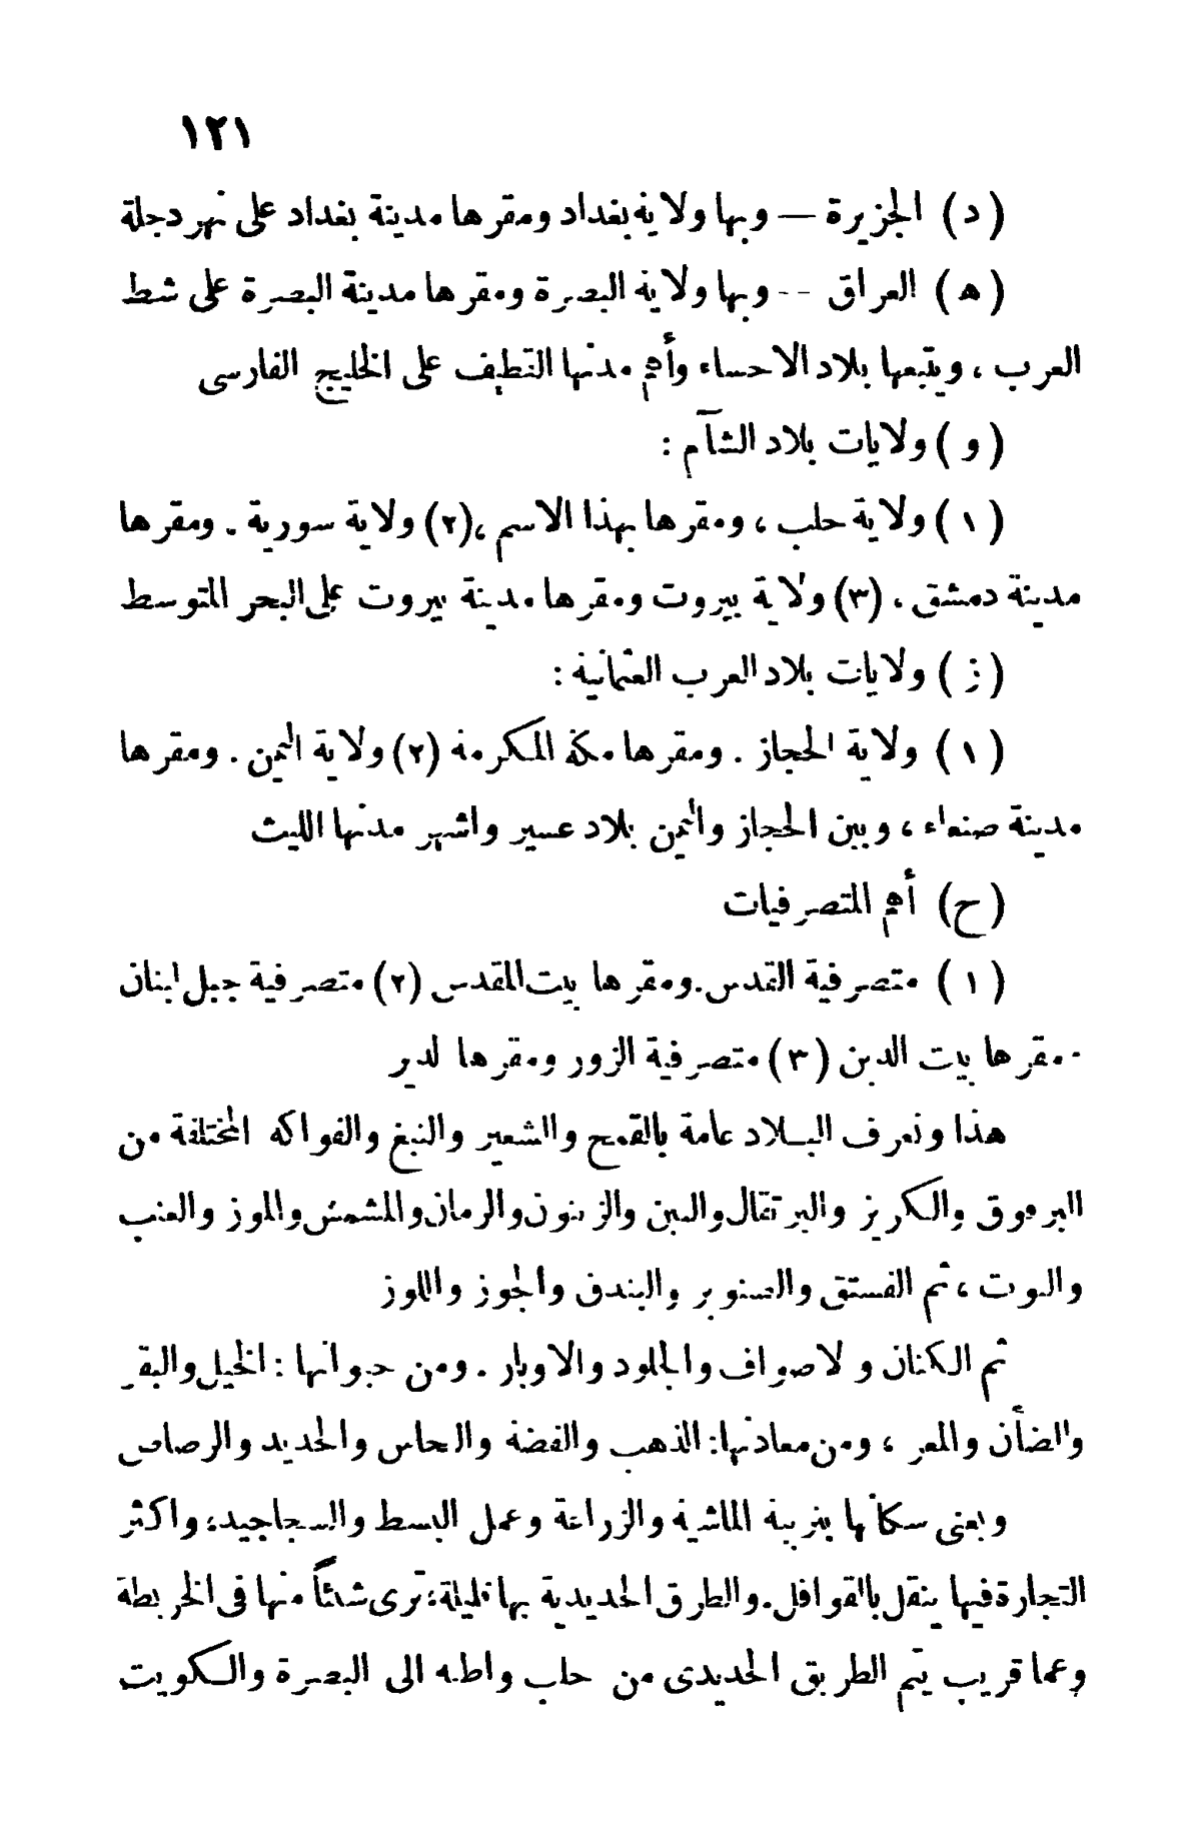 ١٢١
(د) الجزيرة — وبها ولاية بغداد ومقرها مدينة بغداد على نهر دجلة
(ه) العراق -- وبها ولاية البصرة ومقرها مدينة البصرة على شط
العرب ، ويتبعها بلاد الاحساء وأهم مدنها القطيف على الخليج الفارسى
(و) ولايات بلاد الشآم :
(١) ولاية حلب ، ومقرها بهذا الاسم ،(٢) ولاية سورية . ومقرها
مدينة دمشق ، (٣) ولاية بيروت ومقرها مدينة بيروت على البحر المتوسط
(ز) ولايات بلاد العرب العثمانية :
(١) ولاية الحجاز . ومقرها مكة المكرمة (٢) ولاية اليمن . ومقرها
مدينة صنعاء ، وبين الحجاز واليمن بلاد عسير واشهر مدنها الليث
(ح) أهم المتصرفيات
(١) متصرفية القدس.ومقرها بيت المقدس (٢) متصرفية جبل لبنان
ومقرها بيت الدين (٣) متصرفية الزور ومقرها لدير
هذا وتعرف البلاد عامة بالقمح والشعير والتبغ والفواكه المختلفة من
البرقوق والكريز والبرتقال والتين والزيتون والرمان والمشمش والموز والعنب
والتوت ، ثم الفستق والصنوبر والبندق والجوز واللوز
ثم الكتان و لاصواف والجلود والاوبار . ومن حيواناتها : الخيل والبقر
والضأن والمعز ، ومن معادنها: الذهب والفضة والنحاس والحديد والرصاص
ويعنى سكانها بتربية الماشية والزراعة وعمل البسط والسجاجيد، واكثر
التجارة فيها ينقل بالقوافل. والطرق الحديدية بها قليلة، ترى شيئاً منها فى الخريطة
وعما قريب يتم الطريق الحديدى من حلب واطنه الى البصرة والكويت